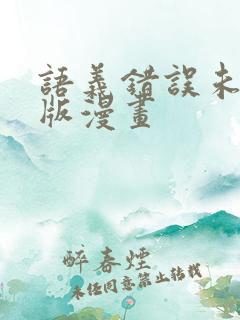 語義錯誤未
版漫畫
醉春煙
未經同意禁止轉載